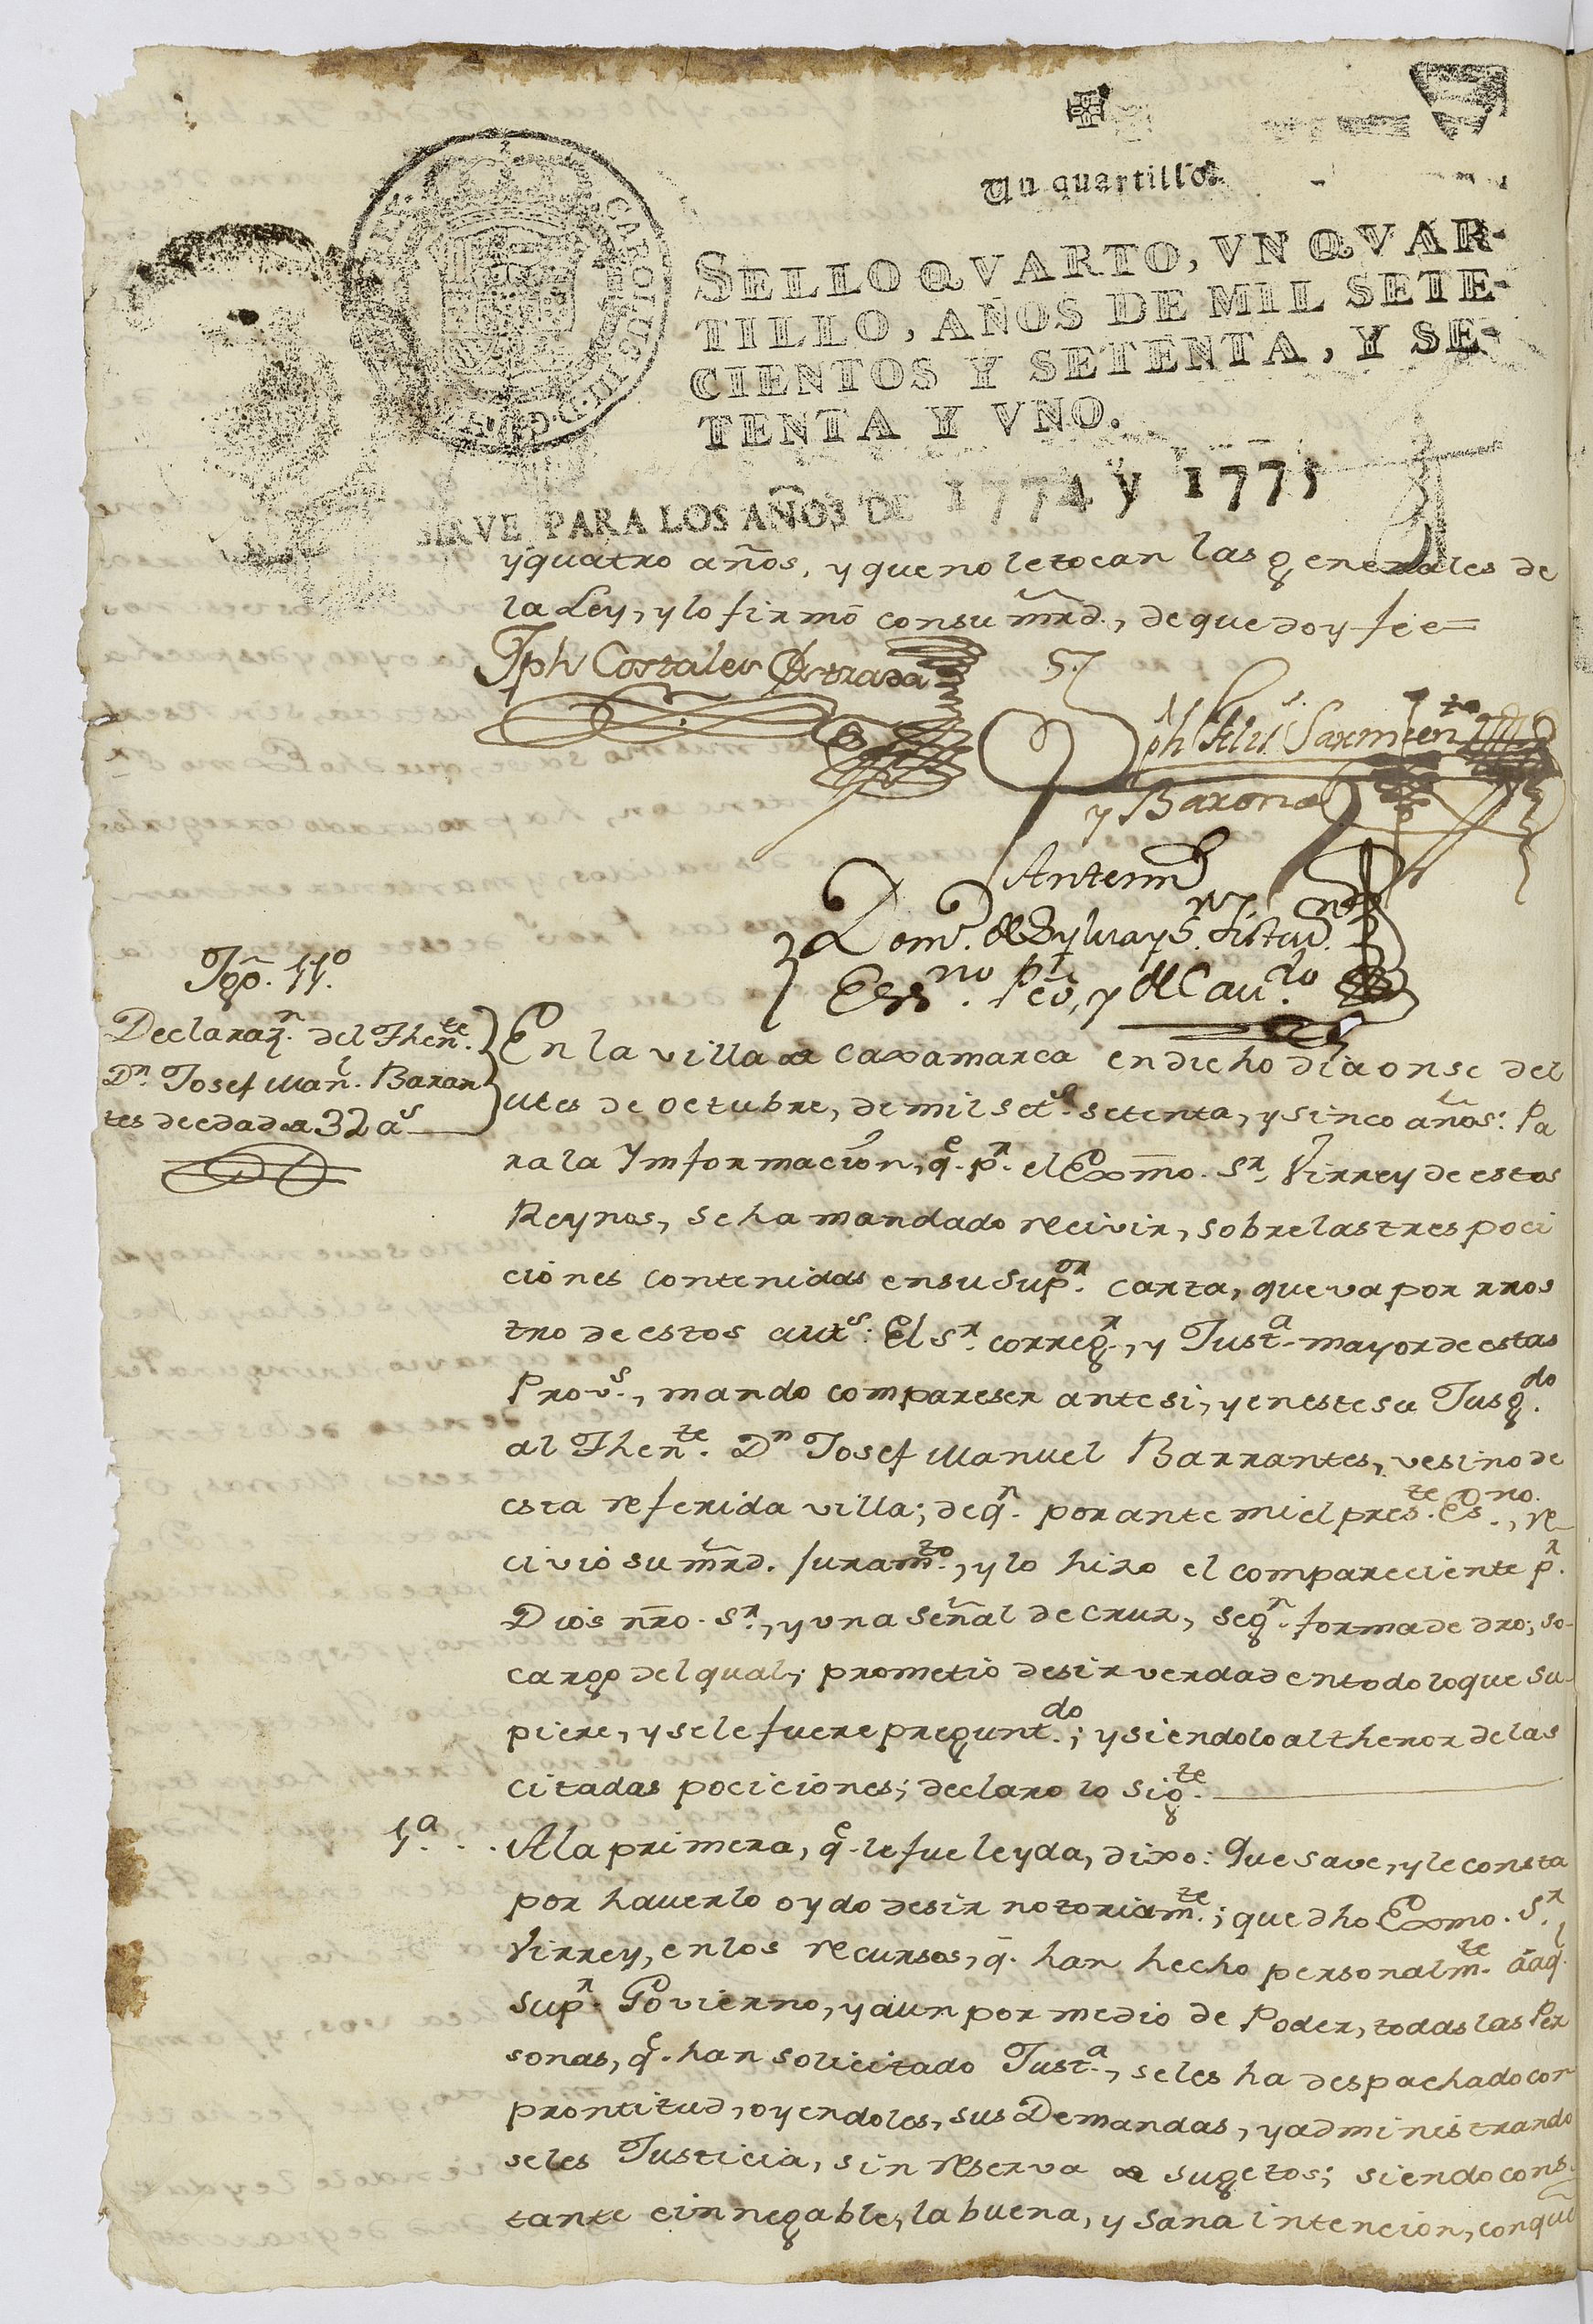 Un quartillo.
CAROLUS III D. G.
SELLO QVARTO, VN QVAR-
TILLO, AÑOS DE MIL SETE-
CIENTOS Y SETENTA, Y SE-
TENTA Y VNO.
SIRVE PARA LOS AÑOS DE 1774 y 1775
y quatro años, y que no le tocan las generales de
la Ley, y lo firmó con su mrd., de que doy fee=
Jph Corzales Estrada
Jph Felis Sarmiento
y Barona
Antemi
Dom.º de Sylva y S.
Essno. pco., y del Cau.do
Tgo. 11º
Declaraz.n del Then.te
Dn. Josef Man.l Baran
tes de edad de 32 a.s
En la villa de Caxamarca en dicho dia onse del
mes de octubre, de mil set.s setenta, y sinco años: Pa
ra la Ymformacion, q.e p.r el Exmo. S.r Virrey de estos
Reynos, se ha mandado recivir, sobre las tres poci
ciones contenidas en su Sup.or carta, que va por rros
tro de estos aut.s: El S.r correg.r, y Just.a mayor de estas
Prov.s, mando compareser ante si, y en este su Jusg.do
al Then.te Dn Josef Manuel Barrantes, vesino de
esta referida villa; de q.n por ante mi el pres.te Es.no, re
civio su mrd. Juram.to, y lo hizo el compareciente p.r
Dios nro. S.r, y una señal de crux, seg.n forma de dro; so
cargo del qual, prometio desir verdad en todo lo que su
piere, y se le fuere pregunt.do; y siendolo al thenor de las
citadas pociciones; declaro lo sig.te
1.a .. A la primera, q.e le fue leyda, dixo: Que save, y le consta
por haverlo oydo desir notoriam.te; que dho Exmo. S.r
Virrey, en los recursos, q. han hecho personalm.te á aq.l
sup.r Govierno, y aun por medio de Poder, todas las Per
sonas, q.e han solicitado Just.a, se les ha despachado con
prontitud, oyendoles, sus Demandas, y administrando
seles Justicia, sin reserva de sugetos; siendo cons
tante e innegable, la buena, y sana intencion, con que